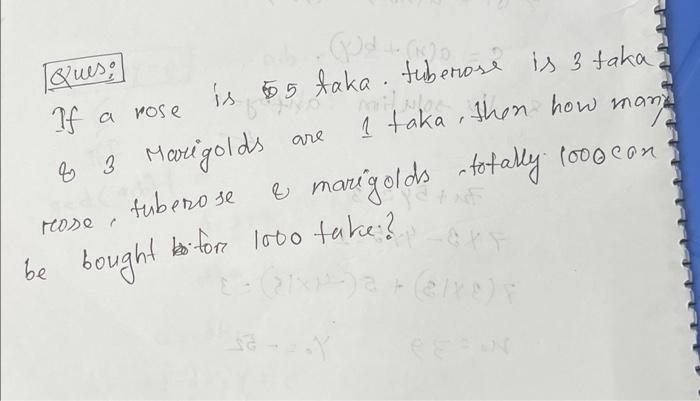 Ques:
If a rose is 5 taka. tuberose is 3 taka
& 3 Marigolds are 1 taka, then how many
rose, tuberose & marigolds totally 1000 can
be bought for 1000 take?